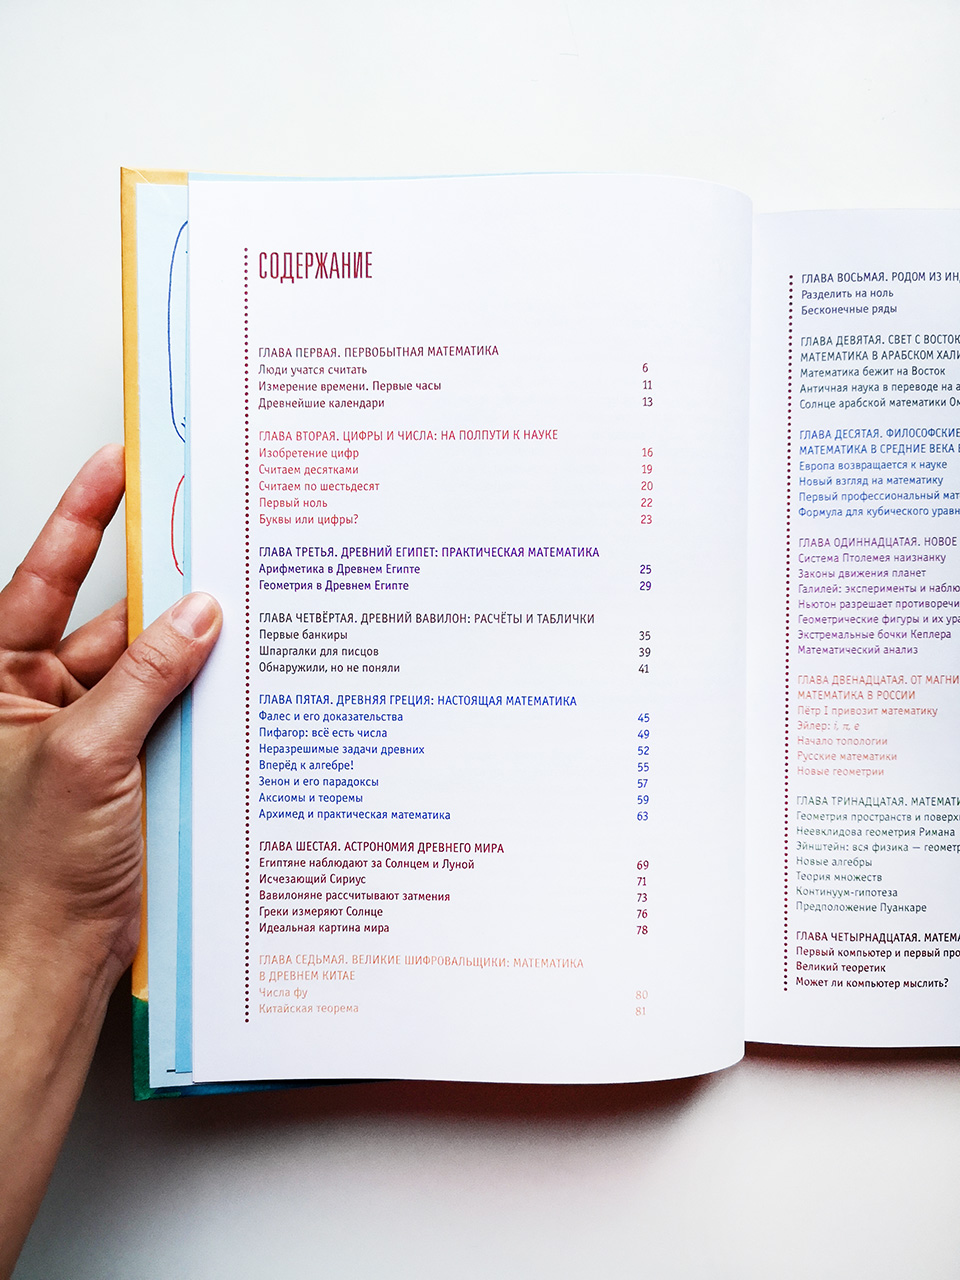 СОДЕРЖАНИЕ
ГЛАВА ПЕРВАЯ. ПЕРВОБЫТНАЯ МАТЕМАТИКА
Люди учатся считать 6
Измерение времени. Первые часы 11
Древнейшие календари 13
ГЛАВА ВТОРАЯ. ЦИФРЫ И ЧИСЛА: НА ПОЛПУТИ К НАУКЕ
Изобретение цифр 16
Считаем десятками 19
Считаем по шестьдесят 20
Первый ноль 22
Буквы или цифры? 23
ГЛАВА ТРЕТЬЯ. ДРЕВНИЙ ЕГИПЕТ: ПРАКТИЧЕСКАЯ МАТЕМАТИКА
Арифметика в Древнем Египте 25
Геометрия в Древнем Египте 29
ГЛАВА ЧЕТВЁРТАЯ. ДРЕВНИЙ ВАВИЛОН: РАСЧЁТЫ И ТАБЛИЧКИ
Первые банкиры 35
Шпаргалки для писцов 39
Обнаружили, но не поняли 41
ГЛАВА ПЯТАЯ. ДРЕВНЯЯ ГРЕЦИЯ: НАСТОЯЩАЯ МАТЕМАТИКА
Фалес и его доказательства 45
Пифагор: всё есть числа 49
Неразрешимые задачи древних 52
Вперёд к алгебре! 55
Зенон и его парадоксы 57
Аксиомы и теоремы 59
Архимед и практическая математика 63
ГЛАВА ШЕСТАЯ. АСТРОНОМИЯ ДРЕВНЕГО МИРА
Египтяне наблюдают за Солнцем и Луной 69
Исчезающий Сириус 71
Вавилоняне рассчитывают затмения 73
Греки измеряют Солнце 76
Идеальная картина мира 78
ГЛАВА СЕДЬМАЯ. ВЕЛИКИЕ ШИФРОВАЛЬЩИКИ: МАТЕМАТИКА
В ДРЕВНЕМ КИТАЕ
Числа фу 80
Китайская теорема 81
ГЛАВА ВОСЬМАЯ. РОДОМ ИЗ
Разделить на ноль
Бесконечные ряды
ГЛАВА ДЕВЯТАЯ. СВЕТ С
МАТЕМАТИКА В АРАБСКОМ
Математика бежит на Восток
Античная наука в переводе на
Солнце арабской математики
ГЛАВА ДЕСЯТАЯ. ФИЛОСОФСКИЕ
МАТЕМАТИКА В СРЕДНИЕ ВЕКА
Европа возвращается к науке
Новый взгляд на математику
Первый профессиональный
Формула для кубического
ГЛАВА ОДИННАДЦАТАЯ. НОВОЕ
Система Птолемея наизнанку
Законы движения планет
Галилей: эксперименты и
Ньютон разрешает
Геометрические фигуры и их
Экстремальные бочки Кеплера
Математический анализ
ГЛАВА ДВЕНАДЦАТАЯ. ОТ
МАТЕМАТИКА В РОССИИ
Пётр I привозит математику
Эйлер: i, π, e
Начало топологии
Русские математики
Новые геометрии
ГЛАВА ТРИНАДЦАТАЯ.
Геометрия пространств и
Неевклидова геометрия Римана
Эйнштейн: вся физика —
Новые алгебры
Теория множеств
Континуум-гипотеза
Предположение Пуанкаре
ГЛАВА ЧЕТЫРНАДЦАТАЯ.
Первый компьютер и первый
Великий теоретик
Может ли компьютер мыслить?